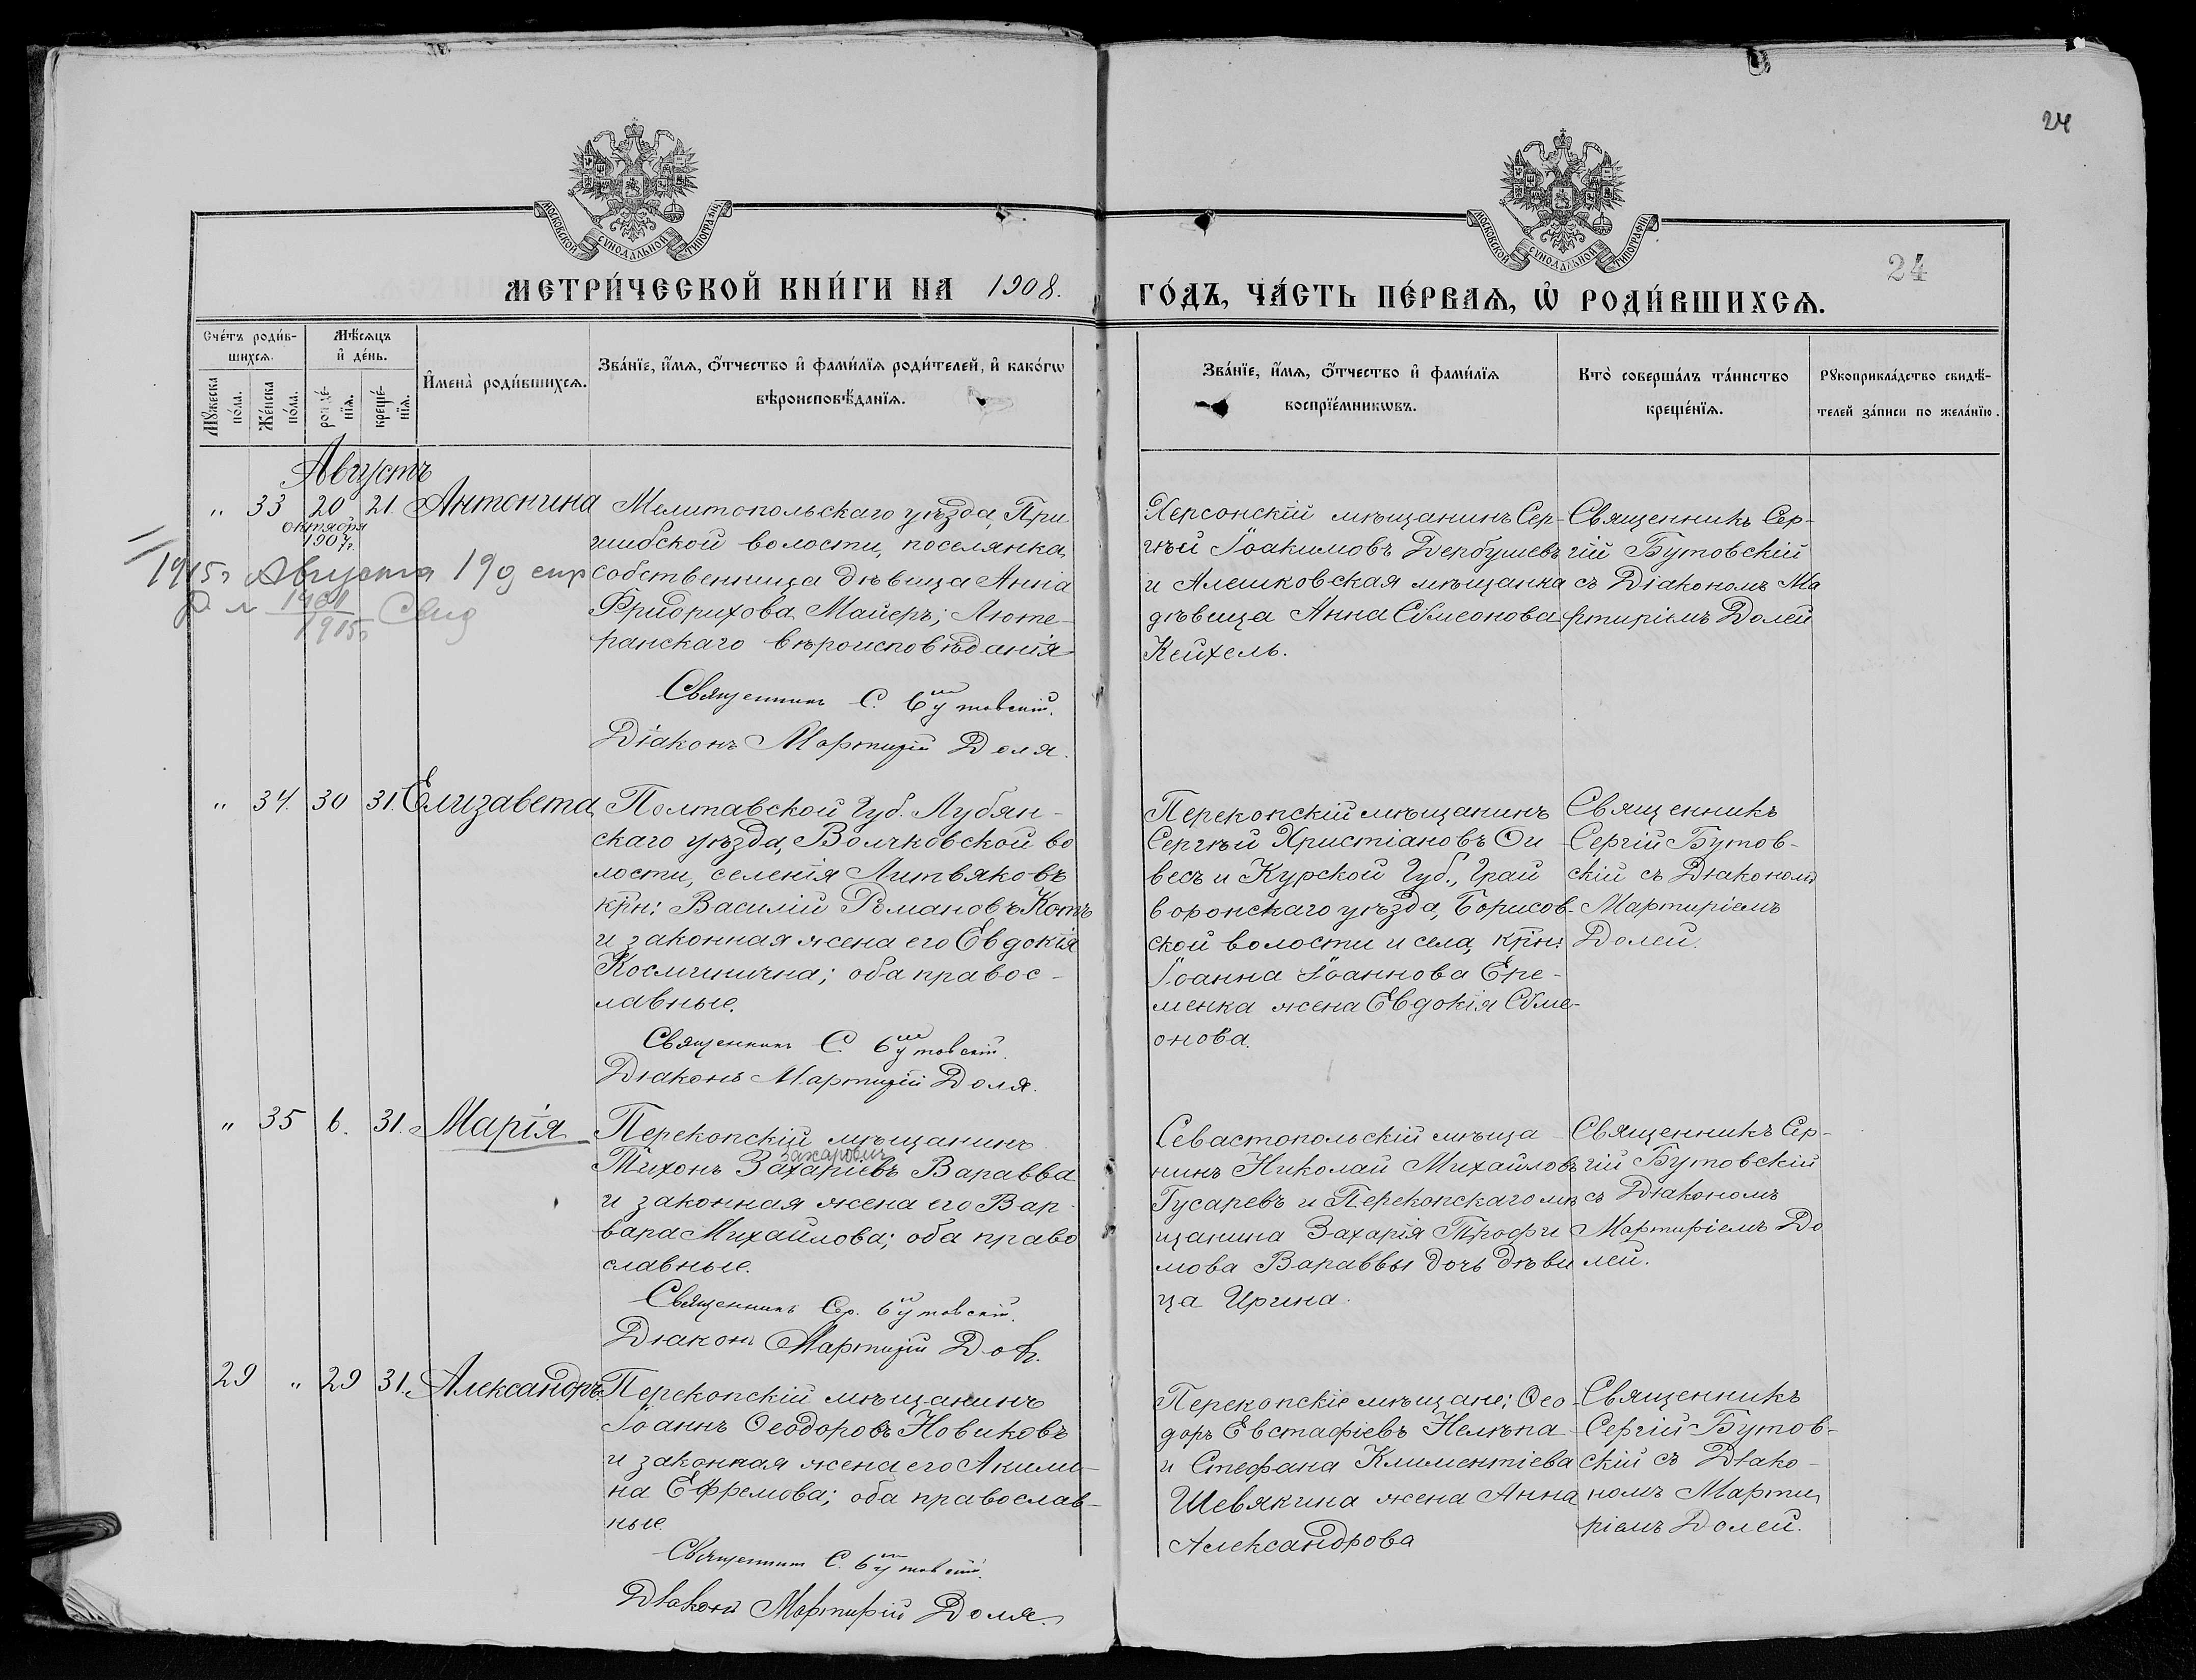 24
МОСКОВСКОЙ СѴНОДАЛЬНОЙ ТИПОГРАФІИ
МОСКОВСКОЙ СѴНОДАЛЬНОЙ ТИПОГРАФІИ
24
МЕТРИ́ЧЕСКОЙ КНИ́ГИ НА 1908. ГО́ДЪ, ЧА́СТЬ ПЕ́РВАѦ, Ѡ҆ РОДИ́ВШИХСѦ.
Сче́тъ роди́в-
шихсѧ.
Мꙋ́жеска
по́ла.
Же́нска
по́ла.
Мѣ́сѧцъ
и҆ де́нь.
рожде́-
нїѧ.
креще́-
нїѧ.
И҆мена̀ роди́вшихсѧ.
Зва́нїе, и҆́мѧ, ѻ҆́тчество и҆ фами́лїѧ роди́телей, и҆ како́гѡ
вѣроисповѣ́данїѧ.
Зва́нїе, и҆́мѧ, ѻ҆́тчество и҆ фами́лїѧ
воспрїе́мникѡвъ.
Кто̀ соверша́лъ та́инство
креще́нїѧ.
Рꙋкоприкла́дство свидѣ́-
телей за́писи по жела́нїю.
Августъ
" 33 20 21. Антонина
октября
1907 г.
1915 г Августа 19 д
1915 г.
Мелитопольскаго уѣзда, При
шибской волости, поселянка,
собственница дѣвица Анна
Фридрихова Майеръ; Люте-
ранскаго вѣроисповѣданія
Священникъ С. Бутовскій.
Діаконъ Мартирій Доля.
Херсонскій мѣщанинъ Сер-
гѣй Іоакимовъ Дербушевъ
и Алешковская мѣщанка
дѣвица Анна Сѵмеонова
Кейхель.
Священникъ Сер-
гій Бутовскій
съ Діакономъ Ма
ртиріемъ Долей
" 34. 30 31. Елизавета
Полтавской Губ. Лубян-
скаго уѣзда, Волчковской во
лости, селенія Литвяковъ
крн: Василій Романовъ Котъ
и законная жена его Евдокія
Космининча; оба правос-
лавные.
Священникъ С. Бутовскій.
Діаконъ Мартирій Доля.
Перекопскій мѣщанинъ
Сергѣй Христіановъ Ои
весъ и Курской Губ., Грай
воронскаго уѣзда, Борисов-
ской волости и села, крн:
Іоанна Іоаннова Ере-
менка жена Евдокія Сѵме-
онова.
Священникъ
Сергій Бутов-
скій съ Діакономъ
Мартиріемъ
Долей.
" 35 6. 31. Марія
Перекопскій мѣщанинъ
Захаровичъ
Тихонъ Захаріевъ Варавва
и законная жена его Вар-
вара Михайлова; оба право
славные.
Священникъ Сер. Бутовскій.
Діаконъ Мартирій Доля.
Севастопольскій мѣща
нинъ Николай Михайловъ
Гусаревъ и Перекопскаго мѣ
щанина Захарія Трофи
мова Вараввы дочь дѣви
ца Ирина.
Священникъ Сер-
гій Бутовскій
съ Діакономъ
Мартиріемъ До
лей.
29 " 29 31. Александръ
Перекопскій мѣщанинъ
Іоаннъ Ѳеодоровъ Новиковъ
и законная жена его Акили-
на Ефремова; оба православ-
ные.
Священникъ С. Бутовскій.
Діаконъ Мартирій Доля.
Перекопскіе мѣщане: Ѳео-
доръ Евстафіевъ Нелѣпа
и Стефана Климентіева
Шевякина жена Анна
Александрова
Священникъ
Сергій Бутов-
скій съ Діако-
номъ Марти
ріемъ Долей.